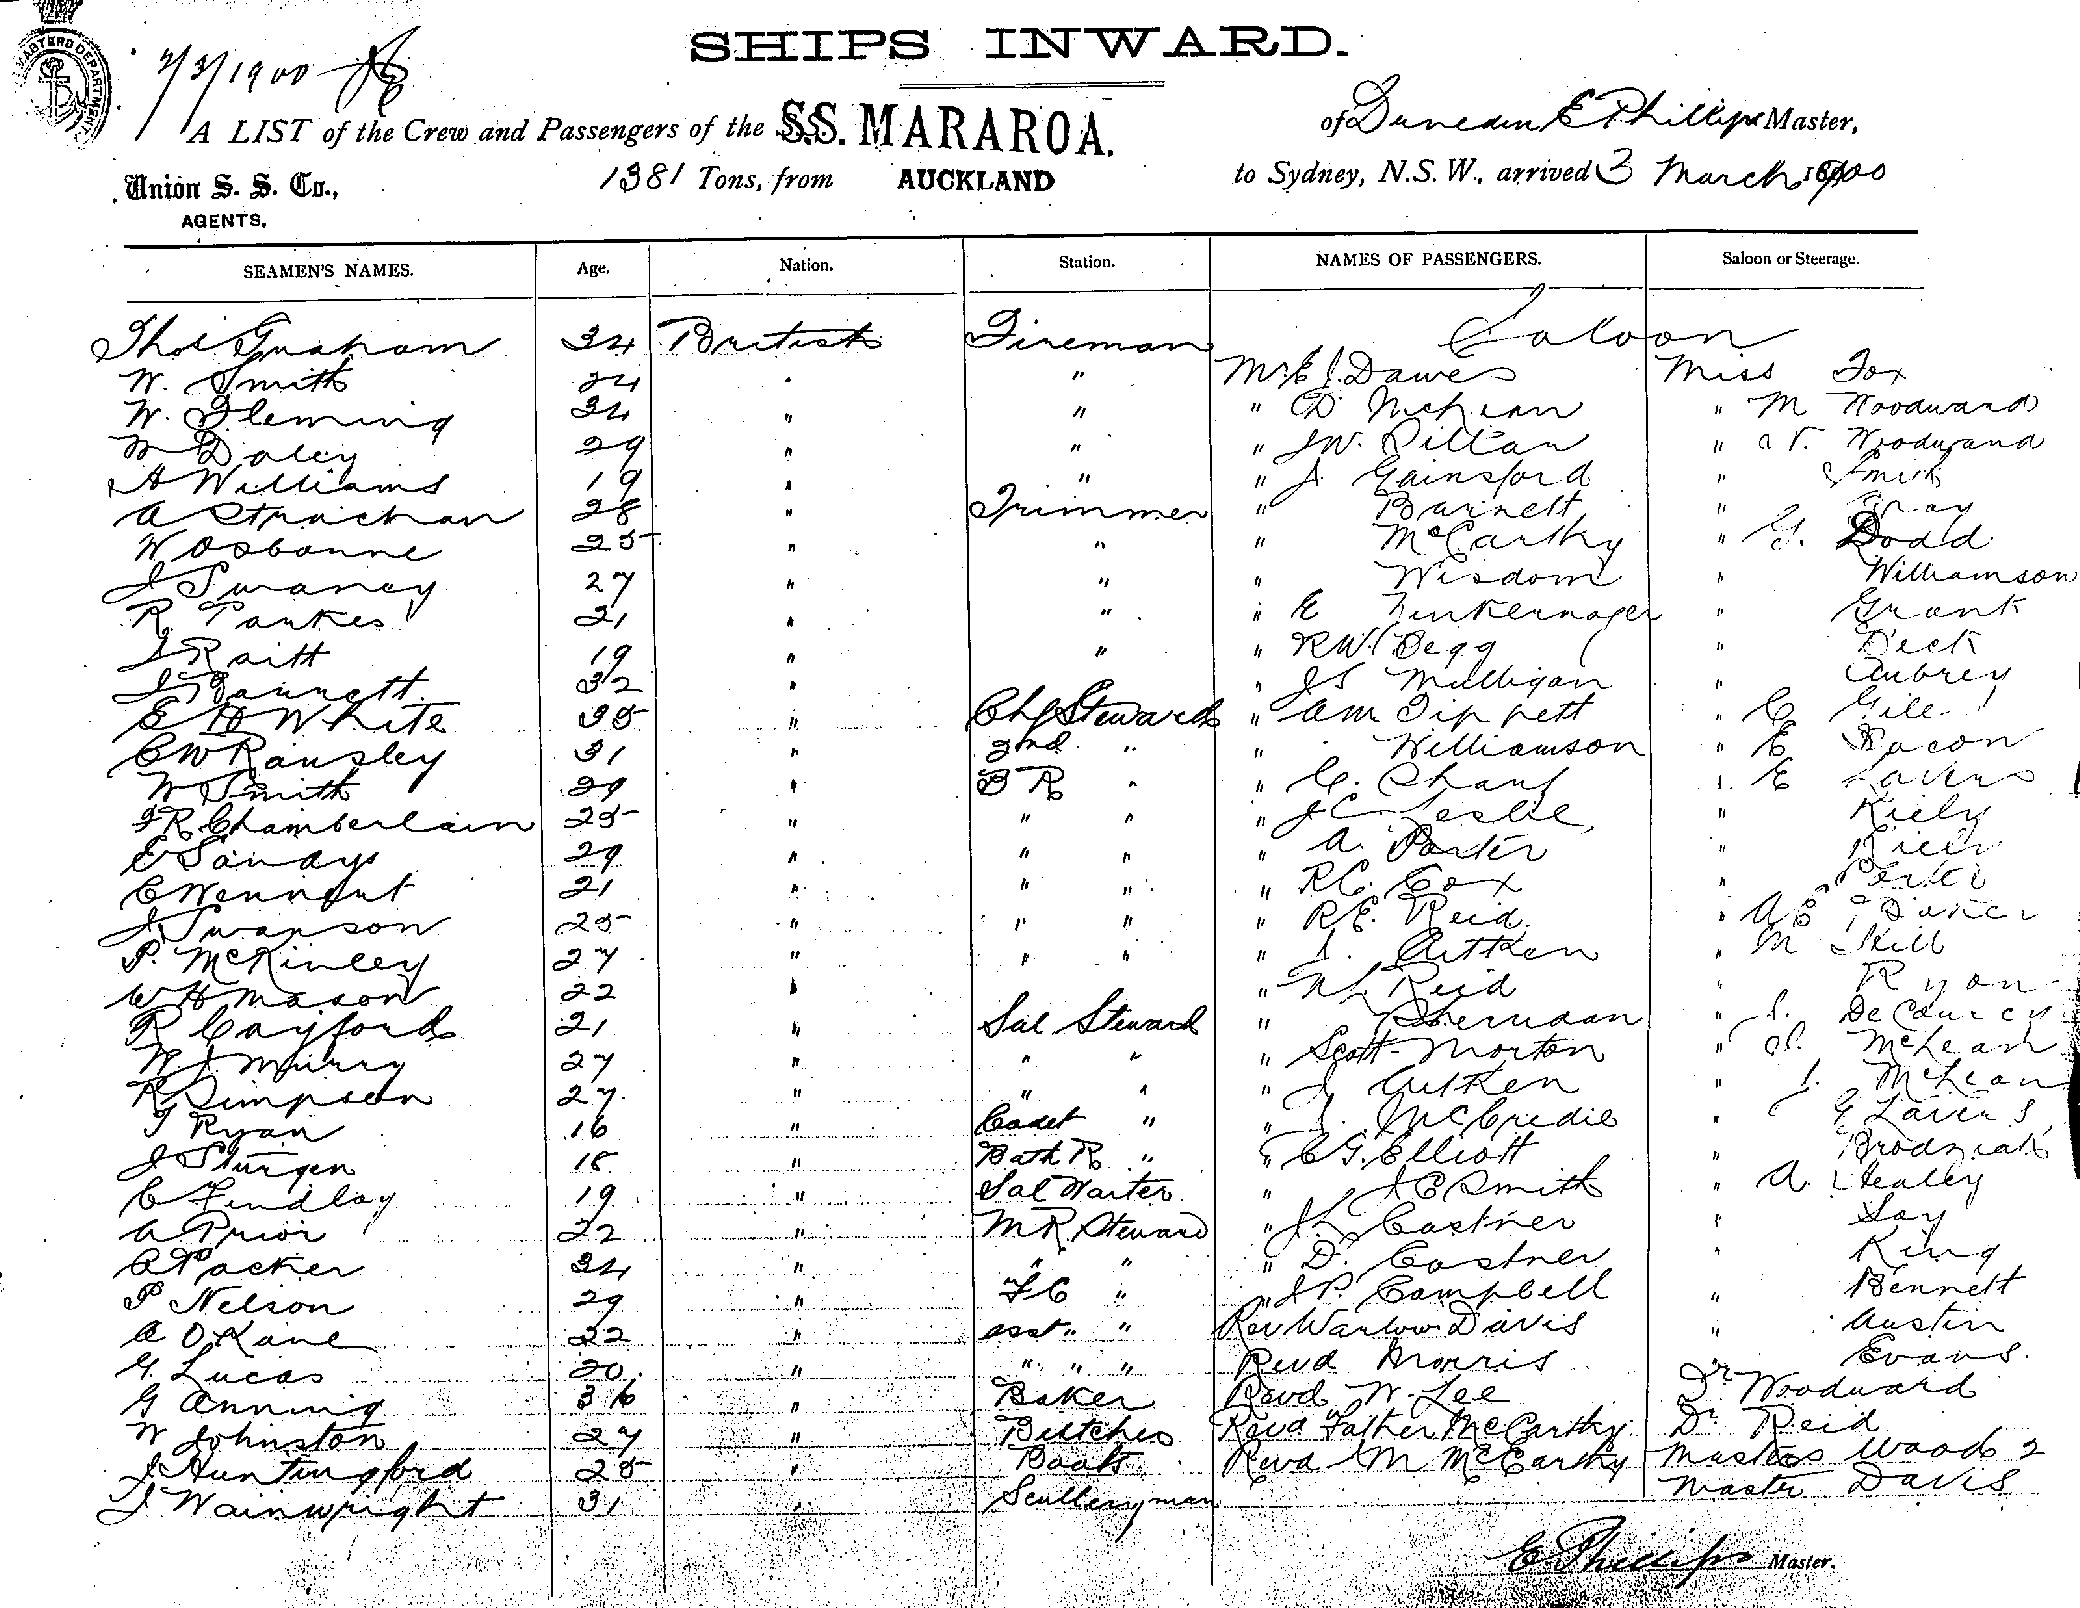 SHIPS INWARD.
2/3/1900
A LIST of the Crew and Passengers of the S.S. MARAROA. of Dunedin E Phillips Master,
Union S. S. Co., 1381 Tons, from AUCKLAND to Sydney, N.S.W., arrived 3 March 1900
AGENTS.
SEAMEN'S NAMES. Age. Nation. Station. NAMES OF PASSENGERS. Saloon or Steerage.
Thos Graham 34 British Fireman Saloon
W. Smith 24 " " Mr E J. Dawes Miss Fox
W. Fleming 34 " " " D McLean " M Woodward
Daley 29 " " " JW. Dillan " Woodward
A Williams 19 " " " J. Gainsford " Smith
A Strachan 28 " Trimmer " Barnett " Gray
W Osbourne 25 " " " McCarthy " G. Dodd
J Swaney 27 " " " Wisdom " Williamson
R. Parkes 21 " " " E " Grant
J Raitt 19 " " " R W. Begg " Beck
J Bannett 32 " " JS Mulligan " Aubrey
E H White 35 " Chf Steward " AM Tippett " C Gill
C W Ransley 31 " 2nd " " Williamson " E Bacon
W Smith 29 " B R " " C. " E
J R Chamberlain 25 " " " " J C Leslie " Kiely
E Sandys 29 " " " " A. Porter "
C Wennent 21 " " " " R C. Cox "
J Swanson 25 " " " " R. E. Reid " A E Baker
P. McKinley 27 " " " " J. Aitken " M Hill
W H Mason 22 " " N L Reid Ryan
R Cayford 21 " Sal Steward " " J. De Courcy
W J Murry 27 " " " " Scott-Morton " McLean
R Simpson 27 " " " " J Aitken " J. McLean
T Ryan 16 " Cadet " " J. McCredie " G Lavers
J Sturgen 18 " Bath R " " C G. Elliott " Brodziak
C Findlay 19 " Sal Waiter " J C Smith " A Healey
A Prior 22 " M R Steward " J L Castner " Say
A Packer 34 " " " " D. Castner " King
P Nelson 29 " F C " " J P. Campbell " Bennett
A O'Kane 22 " asst " " Rev Warlow Davis " Austin
G. Lucas 20 " " " " Revd Morris Evans.
G Anning 36 " Baker Revd W. Lee Dr Woodward
W Johnston 27 " Butcher Revd Father McCarthy Dr Reid
J Huntingford 25 " Boots Revd M McCarthy Masters Woods 2
J Wainwright 31 " Sculleryman Master Davis
E Phillips Master.